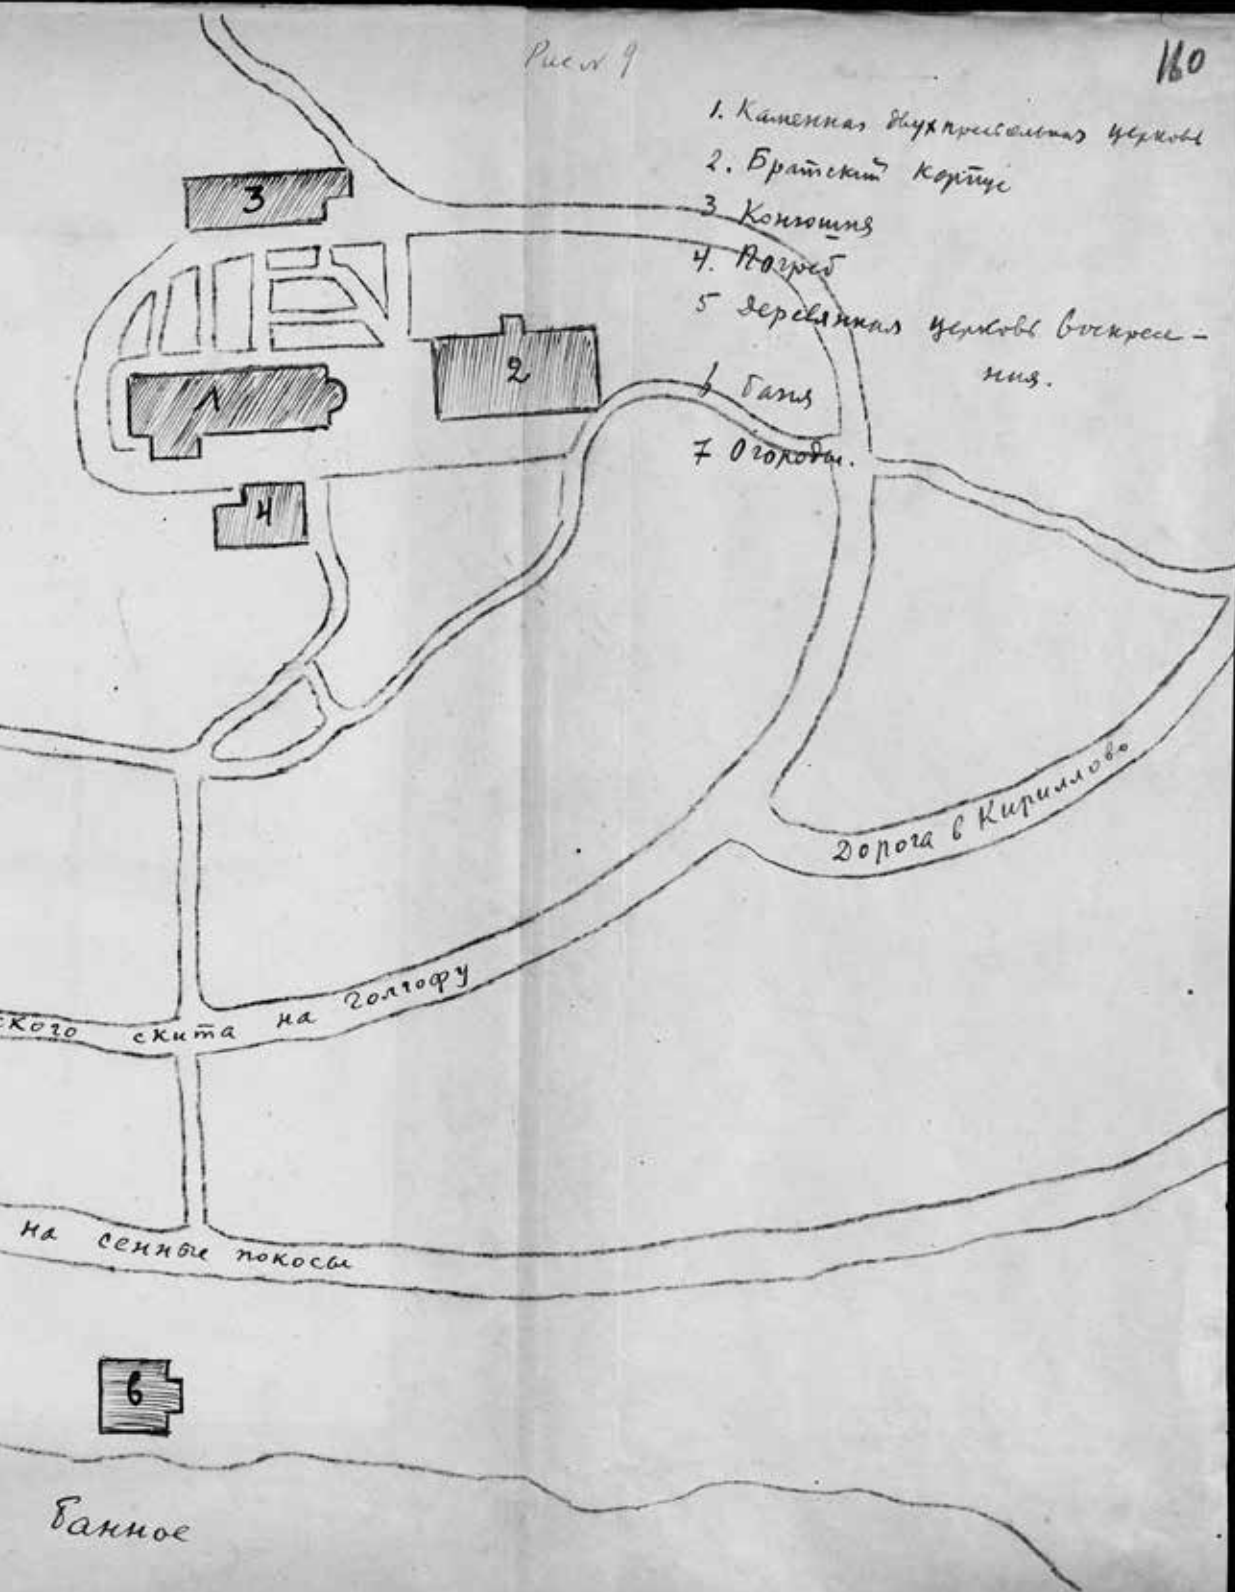 Рис № 9
160
1. Каменная двухпрестольная церковь
2. Братский корпус
3 Конюшня
4. Погреб
5 Деревянная церковь Воскресе-
ния.
6 Баня
7 Огороды.
3
1
2
4
Дорога в Кириллово
ского скита на Голгофу
на сенные покосы
6
Банное